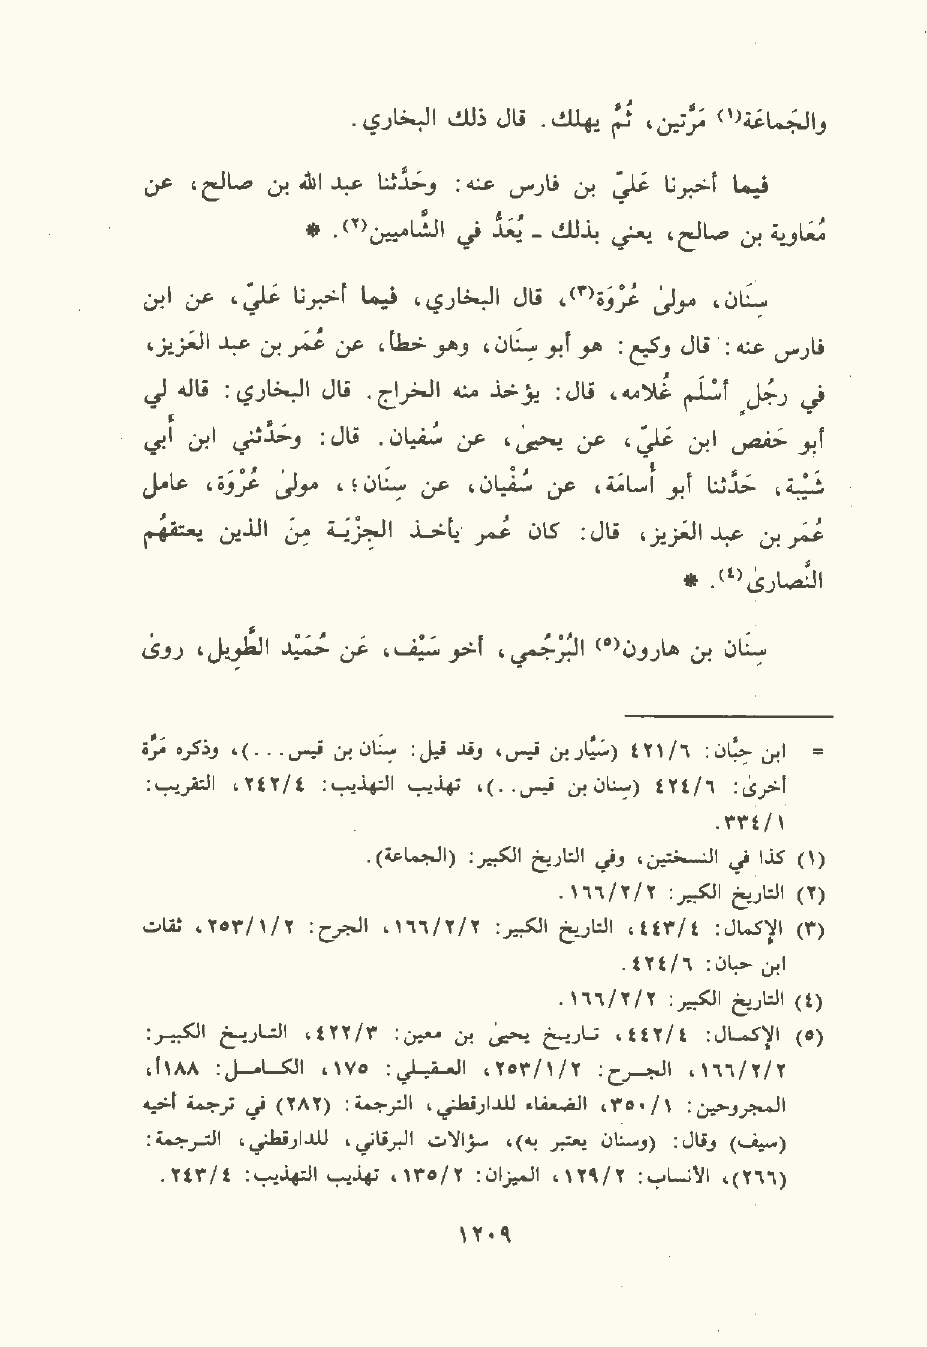 والجَماعَة(١) مَرَّتين، ثُمَّ يهلك. قال ذلك البخاري.
فيما أخبرنا عَليّ بن فارس عنه: وحَدَّثنا عبد الله بن صالح، عن
مُعَاوية بن صالح، يعني بذلك ـ يُعَدُّ في الشَّاميين(٢). *
سِنَان، مولىٰ عُرْوَة(٣)، قال البخاري، فيما أخبرنا عَليّ، عن ابن
فارس عنه: قال وكيع: هو أبو سِنَان، وهو خطأ، عن عُمَر بن عبد العَزيز،
في رجُلٍ أسْلَم غُلامه، قال: يؤخذ منه الخراج. قال البخاري: قاله لي
أبو حَفص ابن عَليّ، عن يحيىٰ، عن سُفيان. قال: وحَدَّثني ابن أَبي
شَيْبة، حَدَّثنا أبو أُسامَة، عن سُفْيان، عن سِنَان؛ مولىٰ عُرْوَة، عامل
عُمَر بن عبد العَزيز، قال: كان عُمر يأخذ الجِزْيَة مِنَ الذين يعتقهُم
النَّصارىٰ(٤). *
سِنَان بن هارون(٥) البُرْجُمي، أخو سَيْف، عَن حُمَيْد الطَّوِيل، روىٰ
= ابن حِبَّان: ٤٢١/٦ (سَيَّار بن قيس، وقد قيل: سِنَان بن قيس...)، وذكره مَرَّة
أخرىٰ: ٤٢٤/٦ (سِنان بن قيس..)، تهذيب التهذيب: ٢٤٢/٤، التقريب:
٣٣٤/١.
(١) كذا في النسختين، وفي التاريخ الكبير: (الجماعة).
(٢) التاريخ الكبير: ١٦٦/٢/٢.
(٣) الإكمال: ٤٤٣/٤، التاريخ الكبير: ١٦٦/٢/٢، الجرح: ٢٥٣/١/٢، ثقات
ابن حبان: ٤٢٤/٦.
(٤) التاريخ الكبير: ١٦٦/٢/٢.
(٥) الإكمال: ٤٤٢/٤، تاريخ يحيىٰ بن معين: ٤٢٢/٣، التاريخ الكبير:
١٦٦/٢/٢، الجرح: ٢٥٣/١/٢، العقيلي: ١٧٥، الكامل: ١٨٨أ،
المجروحين: ٣٥٠/١، الضعفاء للدارقطني، الترجمة: (٢٨٢) في ترجمة أخيه
(سيف) وقال: (وسنان يعتبر به)، سؤالات البرقاني، للدارقطني، الترجمة:
(٢٦٦)، الأنساب: ١٢٩/٢، الميزان: ١٣٥/٢، تهذيب التهذيب: ٢٤٣/٤.
١٢٠٩